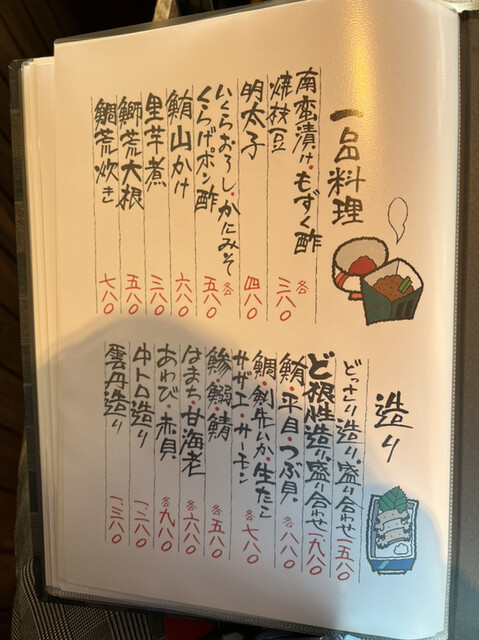 一品料理
南蛮漬け・もずく酢
焼枝豆
各三八〇
明太子
四八〇
いくらおろし・かにみそ
くらげポン酢
各五八〇
鮪山かけ
六八〇
里芋煮
三八〇
鰤荒大根
五八〇
鯛荒炊き
七八〇
造り
どっさり造り盛り合わせ
一五八〇
ど根性造り盛り合わせ
一九八〇
鮪・平目・つぶ貝
各八八〇
鯛・剣先いか・生たこ
サザエ・サーモン
各七八〇
鯵・鰯・鯖
各五八〇
はまち・甘海老
各六八〇
あわび・赤貝
各九八〇
中トロ造り
一、二八〇
雲丹造り
一、三八〇